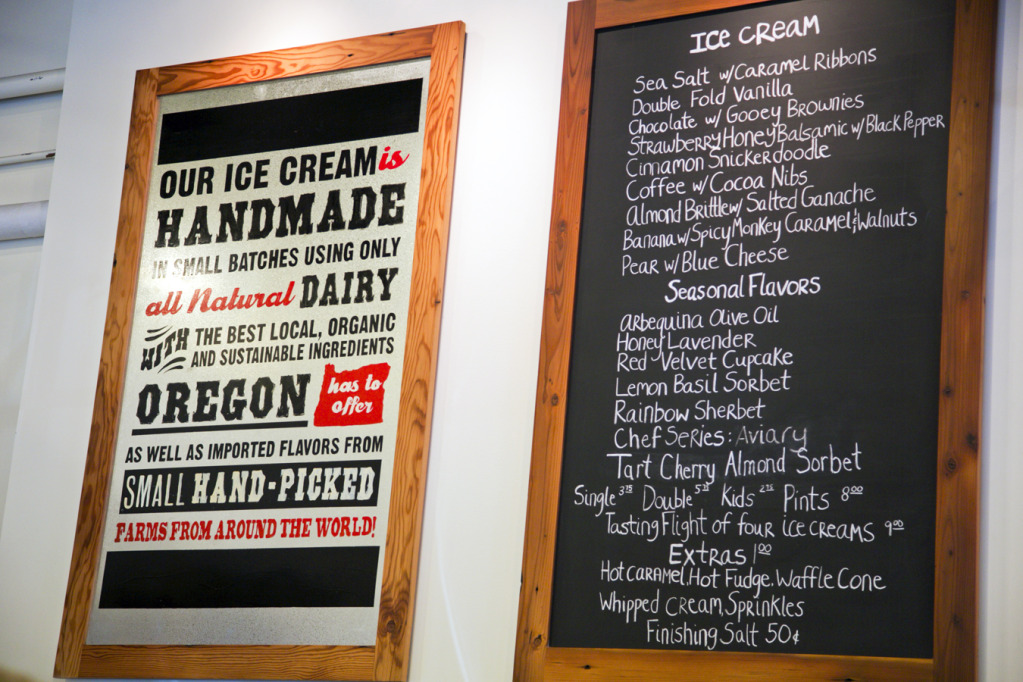 OUR ICE CREAM is
HANDMADE
IN SMALL BATCHES USING ONLY
all Natural DAIRY
WITH THE BEST LOCAL, ORGANIC
AND SUSTAINABLE INGREDIENTS
OREGON has to
offer
AS WELL AS IMPORTED FLAVORS FROM
SMALL HAND-PICKED
FARMS FROM AROUND THE WORLD!
ICE CREAM
Sea Salt w/Caramel Ribbons
Double Fold Vanilla
Chocolate w/ Gooey Brownies
Strawberry Honey Balsamic w/ Black Pepper
Cinnamon Snickerdoodle
Coffee w/ Cocoa Nibs
Almond Brittle w/ Salted Ganache
Banana w/ Spicy Monkey Caramel & Walnuts
Pear w/ Blue Cheese
Seasonal Flavors
Arbequina Olive Oil
Honey Lavender
Red Velvet Cupcake
Lemon Basil Sorbet
Rainbow Sherbet
Chef Series: Aviary
Tart Cherry Almond Sorbet
Single Double Kids Pints 8.00
Tasting Flight of four ice creams 9.00
Extras 1.00
Hot Caramel, Hot Fudge, Waffle Cone
Whipped Cream, Sprinkles
Finishing Salt 50¢